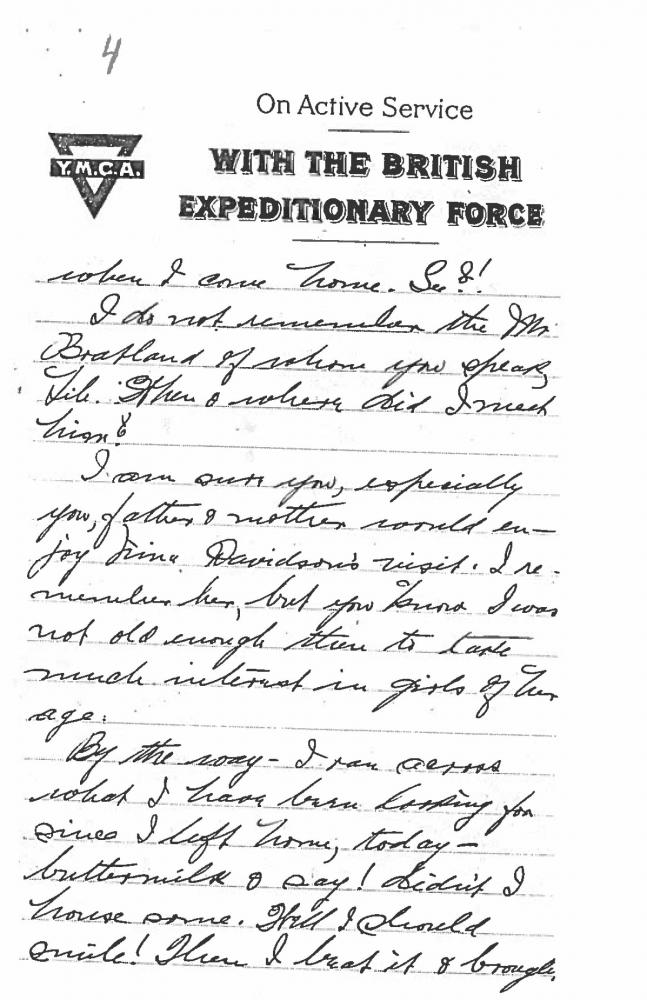 4
On Active Service
Y.M.C.A.
WITH THE BRITISH
EXPEDITIONARY FORCE
when I come home. See?!
I do not remember the Mr
Bratland of whom you speak,
Lib. When & where did I meet
him?
I am sure you, especially
you, father & mother would en-
joy Davidson's visit. I re-
member her, but you know I was
not old enough then to take
much interest in girls of her
age.
By the way - I ran across
what I have been looking for
since I left home, today -
buttermilk & say! Didn't I
house some. Well I should
smile! Then I beat it & brough